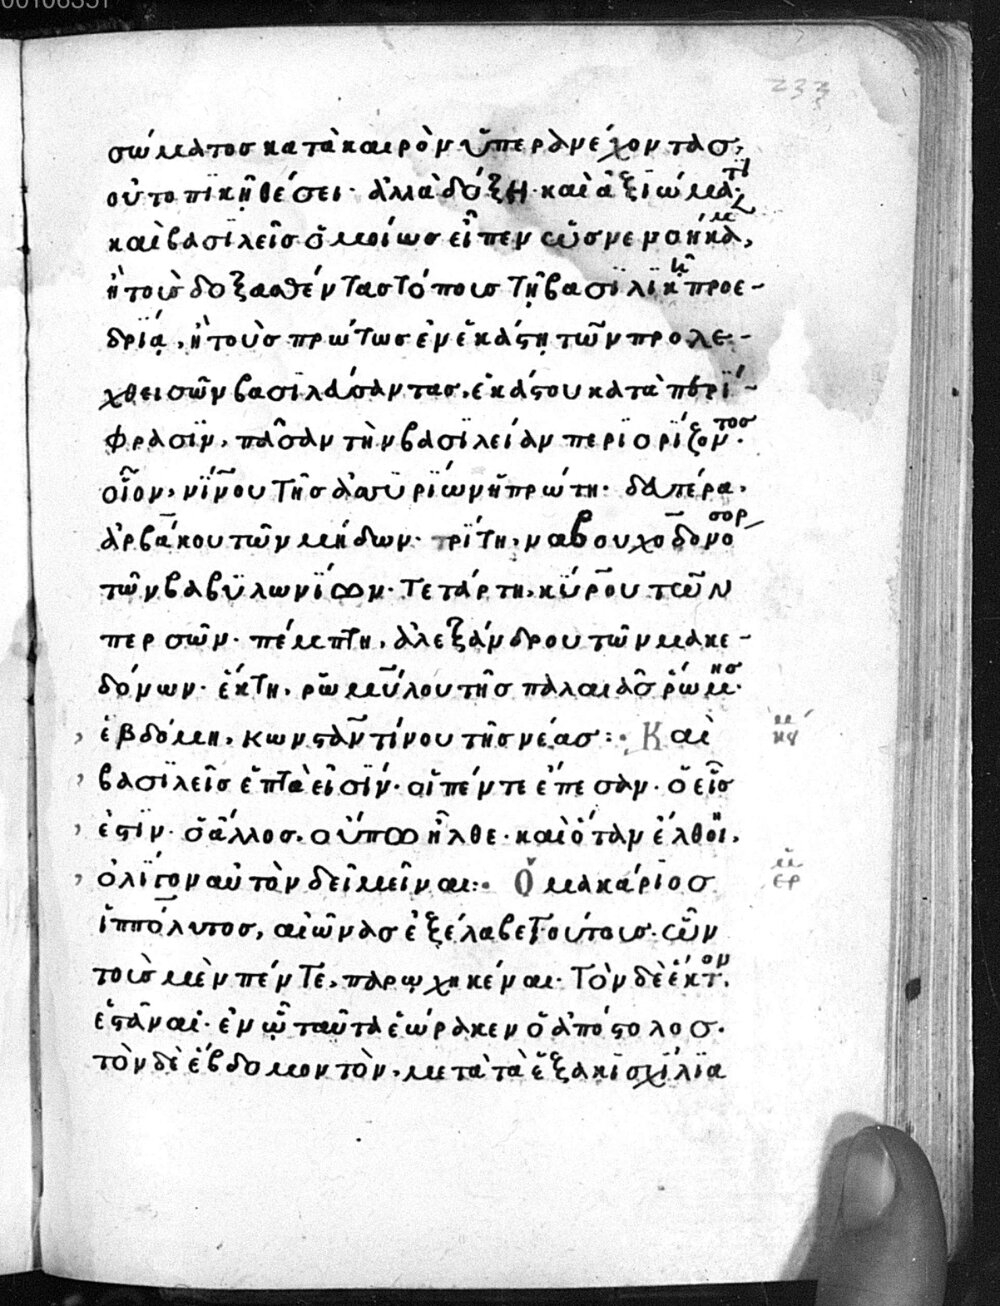 233
σώματος κατὰ καιρὸν ὑπερανέχοντας,
οὐ τοπϊκῇ θέσει· ἀλλὰ δόξῃ· καὶ ἀξϊώματι·
καὶ βασϊλεῖς ὁμοίως εἶπεν
ἢ τοὺς δοξασθέντας τόπους τῇ βασϊλϊκῇ προε-
δρίᾳ, ἢ τοὺς πρώτως ἐν ἑκάστῃ τῶν προλε-
χθεισῶν βασϊλεύσαντας, ἑκάστου κατὰ περί-
φρασϊν, πᾶσαν τὴν βασϊλείαν περϊορίζοντος·
οἷον, νίνου τῆς ἀσυρίων ἡ πρώτη· δευτέρα,
ἀρβάκου τῶν μήδων· τρίτη, ναβουχοδονόσορ
τῶν βαβυλωνίων· τετάρτη, κύρου τῶν
περσῶν· πέμπτη, ἀλεξάνδρου τῶν μακε-
δόνων· ἕκτη, ῥωμύλου τῆς παλαιᾶς ῥώμης·
ἑβδόμη, κωνσταντίνου τῆς νέας:· Καὶ
βασϊλεῖς ἑπτὰ εἰσίν· οἱ πέντε ἔπεσαν· ὁ εἷς
ἐστϊν· ὁ ἄλλος, οὔπω ἦλθε· καὶ ὅταν ἔλθοι,
ὀλίγον αὐτὸν δεῖ μεῖναι:· Ὁ μακάριος
ἱππόλυτος, αἰῶνας ἐξέλαβε τούτους· ὧν
τοὺς μὲν πέντε, παρῳχηκέναι· τὸν δὲ ἕκτον,
ἑστᾶναι· ἐν ᾧ ταῦτα ἑώρακεν ὁ ἀπόστολος·
τὸν δὲ ἕβδομον τὸν, μετὰ τὰ ἑξακισχίλϊα